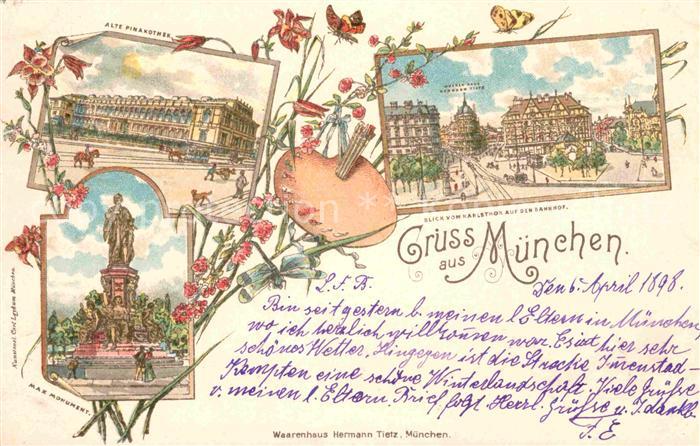 ALTE PINAKOTHEK.
WAAREN HAUS
HERMANN TIETZ
BLICK VOM KARLSTHOR AUF DEN BAHNHOF.
Gruss
aus München.
L. F. B. Den 6. April 1898.
Bin seit gestern b. meinen l. Eltern in München,
wo ich herzlich willkommen war. Es ist hier sehr
schönes Wetter, Hingegen ist die Strecke Immenstad-
Kempten eine schöne Winterlandschaft. Viele Grüße
v. meinen l. Eltern. Brief folgt. Herzl. Grüße u.
F. E.
MAX MONUMENT.
Kunstanst. München.
Waarenhaus Hermann Tietz, München.